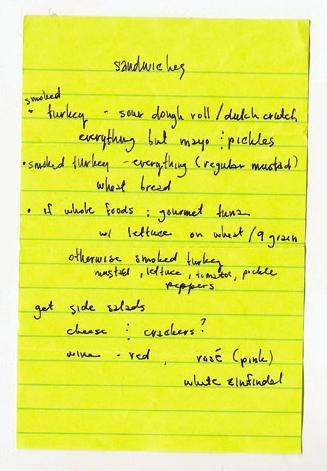 sandwiches
smoked
• turkey - sour dough roll / dutch crutch
everything but mayo : pickles
• smoked turkey - everything (regular mustad)
wheat bread
• if whole foods : gourmet tuna
w/ lettuce on wheat / 9 grain
otherwise smoked turkey
mustard, lettuce, tomatoe, pickle
peppers
get side salads
cheese : crackers?
wine - red, rosé (pink)
white zinfindel